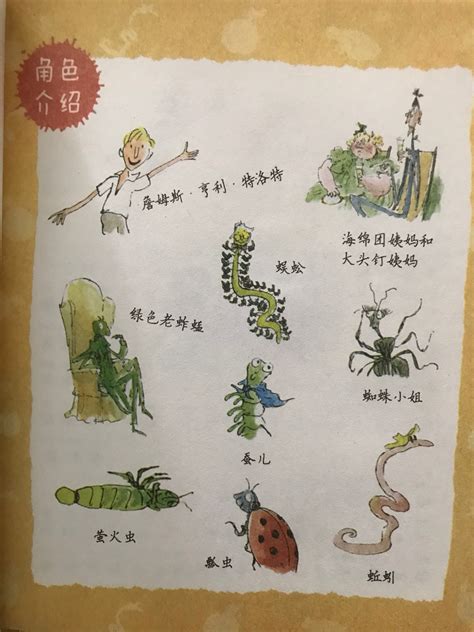 角色
介绍
詹姆斯·亨利·特洛特
海绵团姨妈和
大头钉姨妈
蜈蚣
绿色老蚱蜢
蜘蛛小姐
蚕儿
萤火虫
瓢虫
蚯蚓